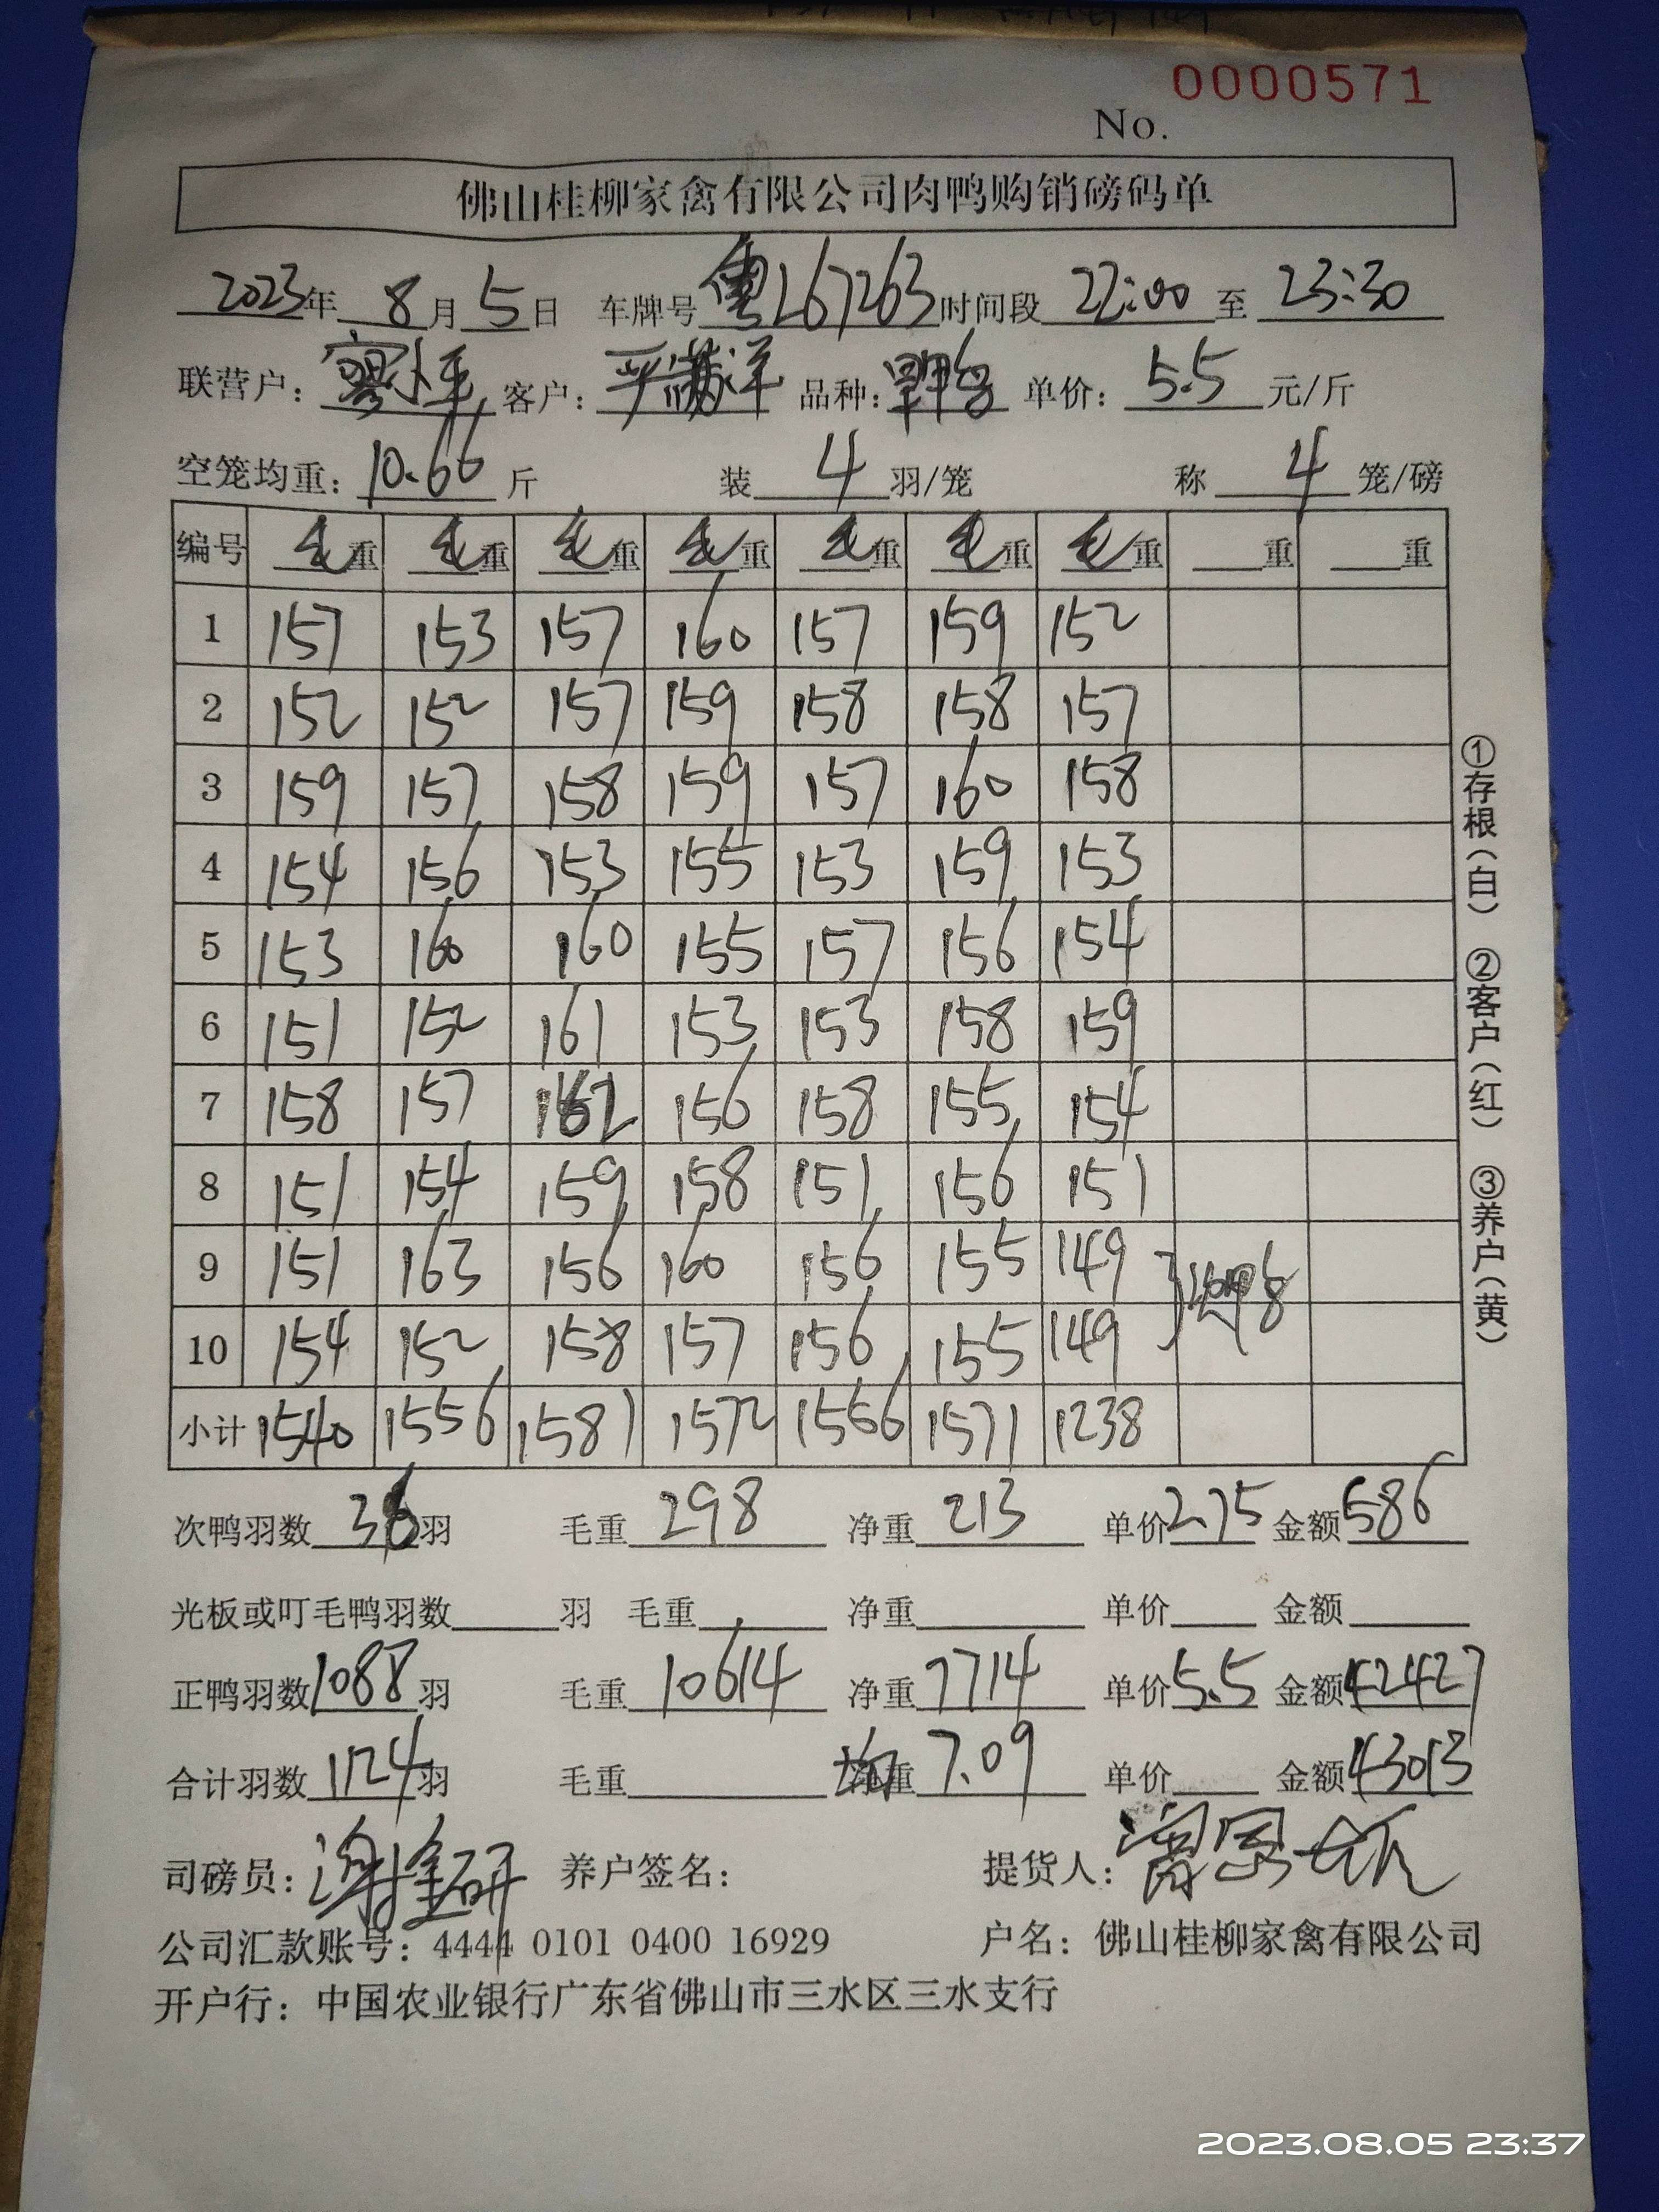 0000571
No.
佛山桂柳家禽有限公司肉鸭购销磅码单
2023年 8月 5日 车牌号 粤L67263 时间段 22:00 至 23:30
联营户: 客户: 严满洋 品种: 单价: 5.5 元/斤
空笼均重: 10.66 斤 装 4 羽/笼 称 4 笼/磅
编号 毛重 毛重 毛重 毛重 毛重 毛重 毛重 重 重
1 157 153 157 160 157 159 152
2 152 152 157 159 158 158 157
3 159 157 158 159 157 160 158
4 154 156 153 155 153 159 153
5 153 160 160 155 157 156 154
6 151 152 161 153 153 158 159
7 158 157 162 156 158 155 154
8 151 154 159 158 151 156 151
9 151 163 156 160 156 155 149
10 154 152 158 157 156 155 149
小计 1540 1556 1581 1572 1556 1571 1238
次鸭羽数 36 羽 毛重 298 净重 213 单价 2.75 金额 586
光板或叮毛鸭羽数 羽 毛重 净重 单价 金额
正鸭羽数 1088 羽 毛重 10614 净重 7714 单价 5.5 金额 42427
合计羽数 1124 羽 毛重 均重 7.09 单价 金额 43013
司磅员: 养户签名: 提货人:
公司汇款账号: 4444 0101 0400 16929 户名: 佛山桂柳家禽有限公司
开户行: 中国农业银行广东省佛山市三水区三水支行
①存根(白) ②客户(红) ③养户(黄)
2023.08.05 23:37